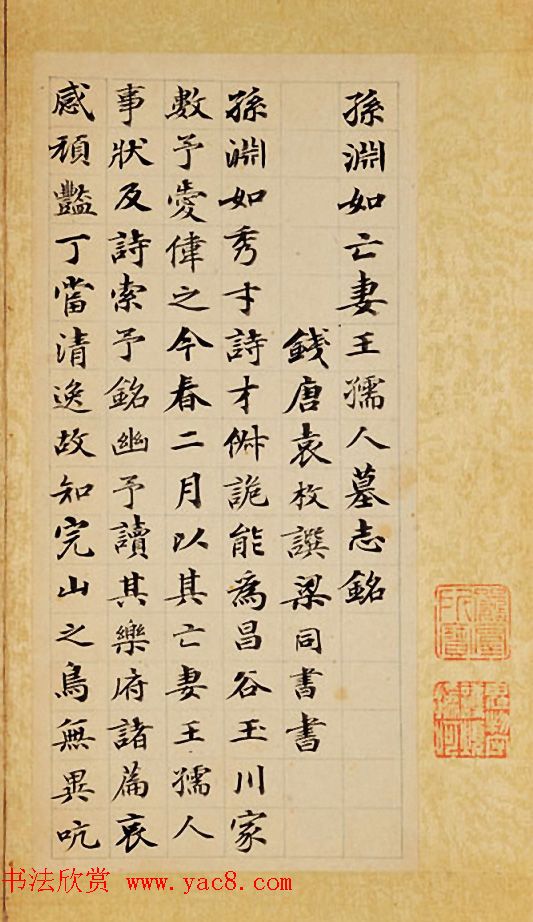 孫淵如亡妻王孺人墓志銘
錢唐袁枚譔梁同書書
孫淵如秀才詩才詭能爲昌谷玉川家
數予愛偉之今春二月以其亡妻王孺人
事狀及詩索予銘幽予讀其樂府諸篇哀
感頑豔丁當清逸故知完山之鳥無異吭
书法欣赏 www.yac8.com